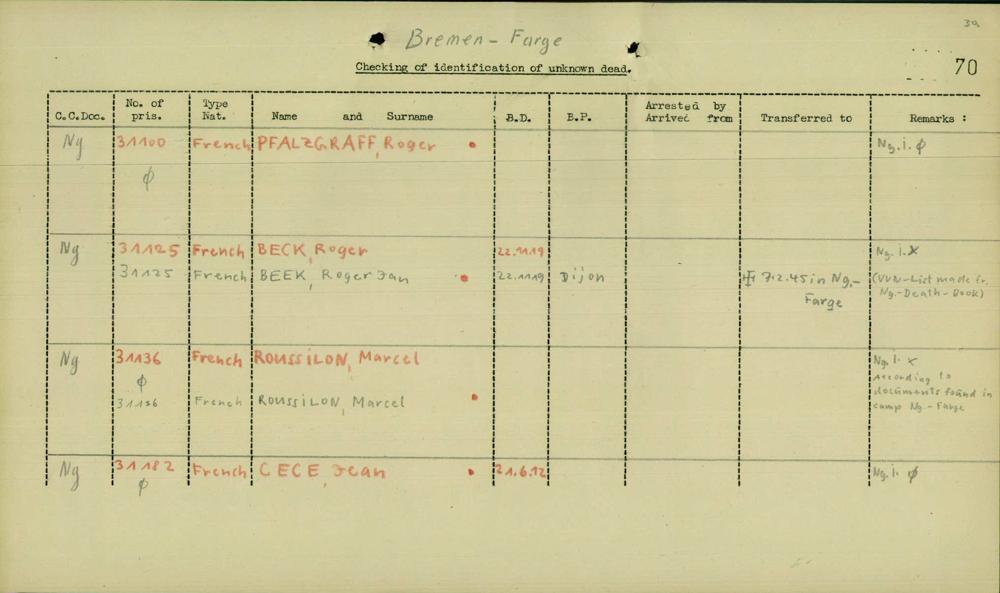 30
Bremen - Farge
70
Checking of identification of unknown dead.
C.C.Doc. No. of pris. Type Nat. Name and Surname B.D. B.P. Arrested by Arrived from Transferred to Remarks :
Ng 31100 French PFALZGRAFF, Roger Ng. i. ϕ
ϕ
Ng 31125 French BECK, Roger 22.11.19 Ng. i. x
31125 French BEEK, Roger Jan 22.11.19 Dijon 7.2.45 in Ng.- Farge (VVN-List made fr. Ng.-Death-Book)
Ng 31136 French ROUSSILON, Marcel Ng. i. x
ϕ According to
31136 French ROUSSILON, Marcel documents found in
camp Ng - Farge
Ng 31182 French CECE, Jean 21.6.12 Ng. i. ϕ
ϕ